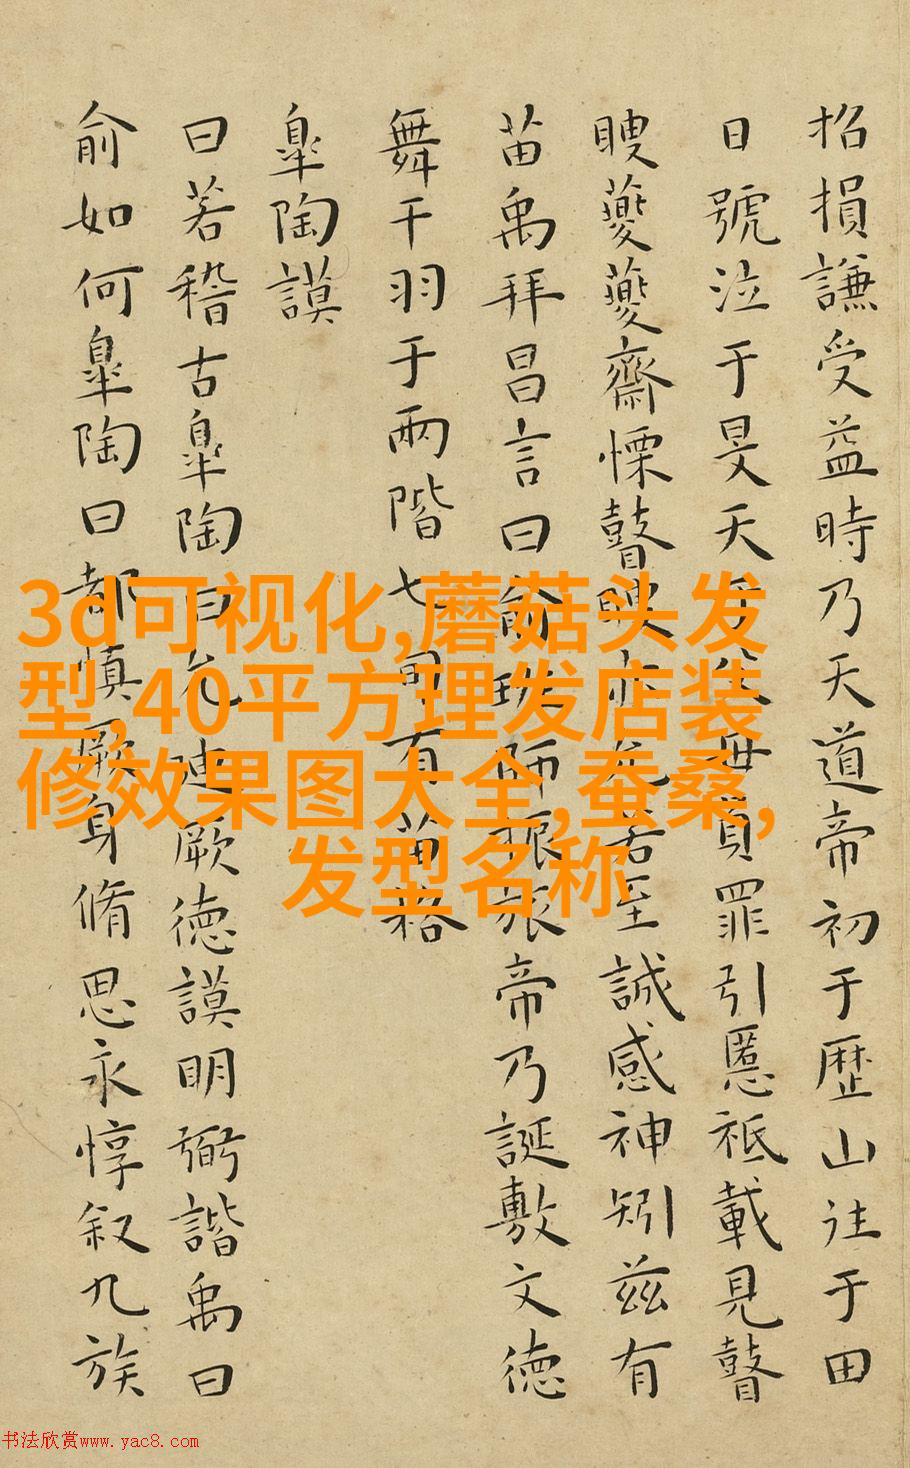 招損謙受益時乃天道帝初于歴山往于田
日號泣于旻天于父母負罪引慝祗載見瞽
瞍夔夔齋慄瞽瞍亦允若至誠感神矧兹有
苗禹拜昌言曰俞班師振旅帝乃誕敷文徳
舞干羽于兩階七旬有苗格
臯陶謨
曰若稽古臯陶曰允迪厥徳謨明弼諧禹曰
俞如何臯陶曰都慎厥身脩思永惇叙九族
3d可视化,蘑菇头发
型,40平方理发店装
修效果图大全,蚕桑,
发型名称
书法欣赏www.yac8.com